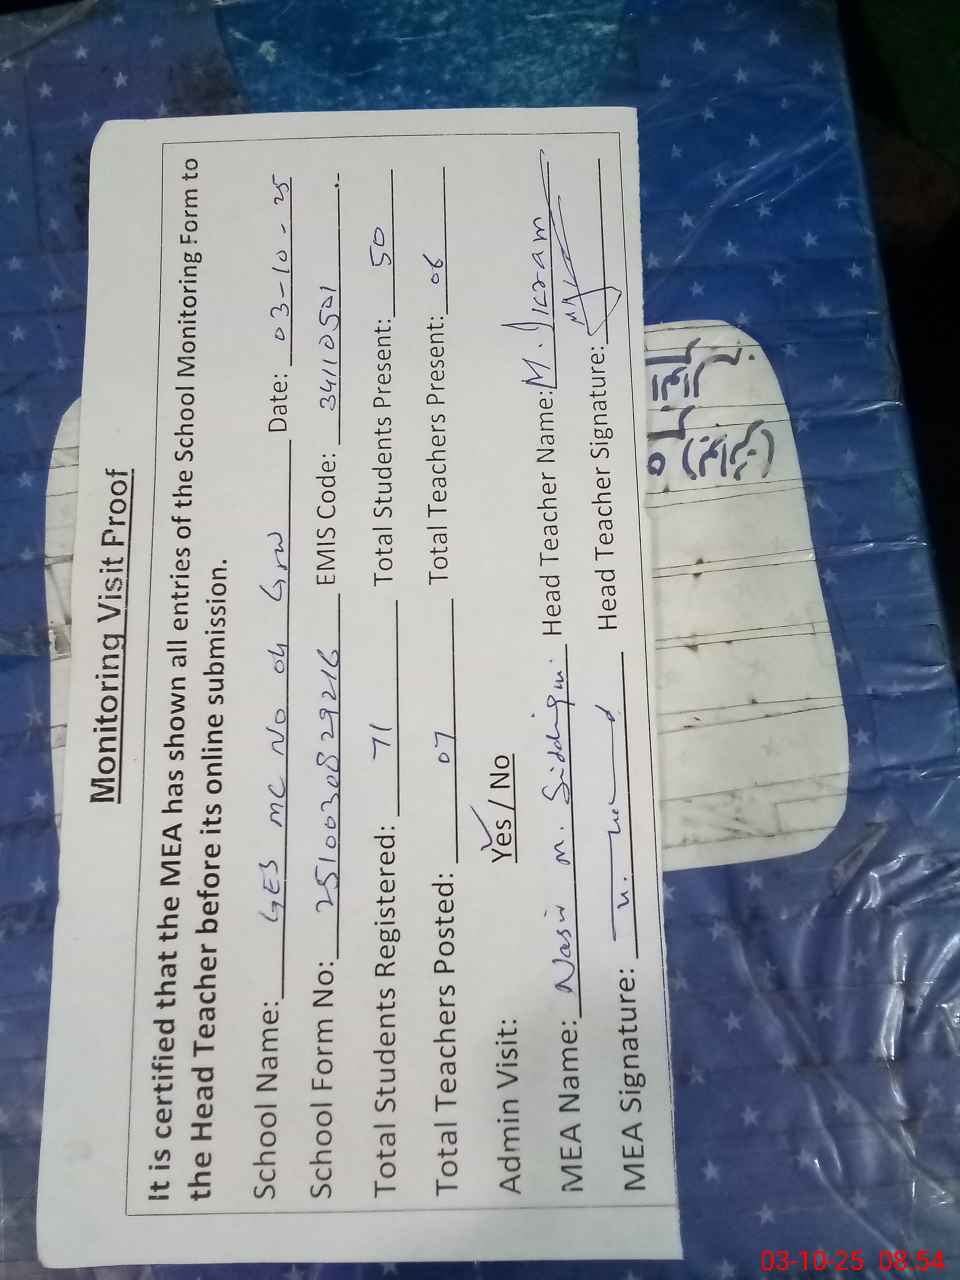 Monitoring Visit Proof
It is certified that the MEA has shown all entries of the School Monitoring Form to
the Head Teacher before its online submission.
School Name: GES MC No 04 Grw Date: 03-10-25
School Form No: 2510030829216 EMIS Code: 34110501
Total Students Registered: 71 Total Students Present: 50
Total Teachers Posted: 07 Total Teachers Present: 06
Admin Visit: Yes / No
MEA Name: Nasir M. Siddiqui Head Teacher Name: M. Ikram
MEA Signature: Head Teacher Signature:
03-10-25 08:54